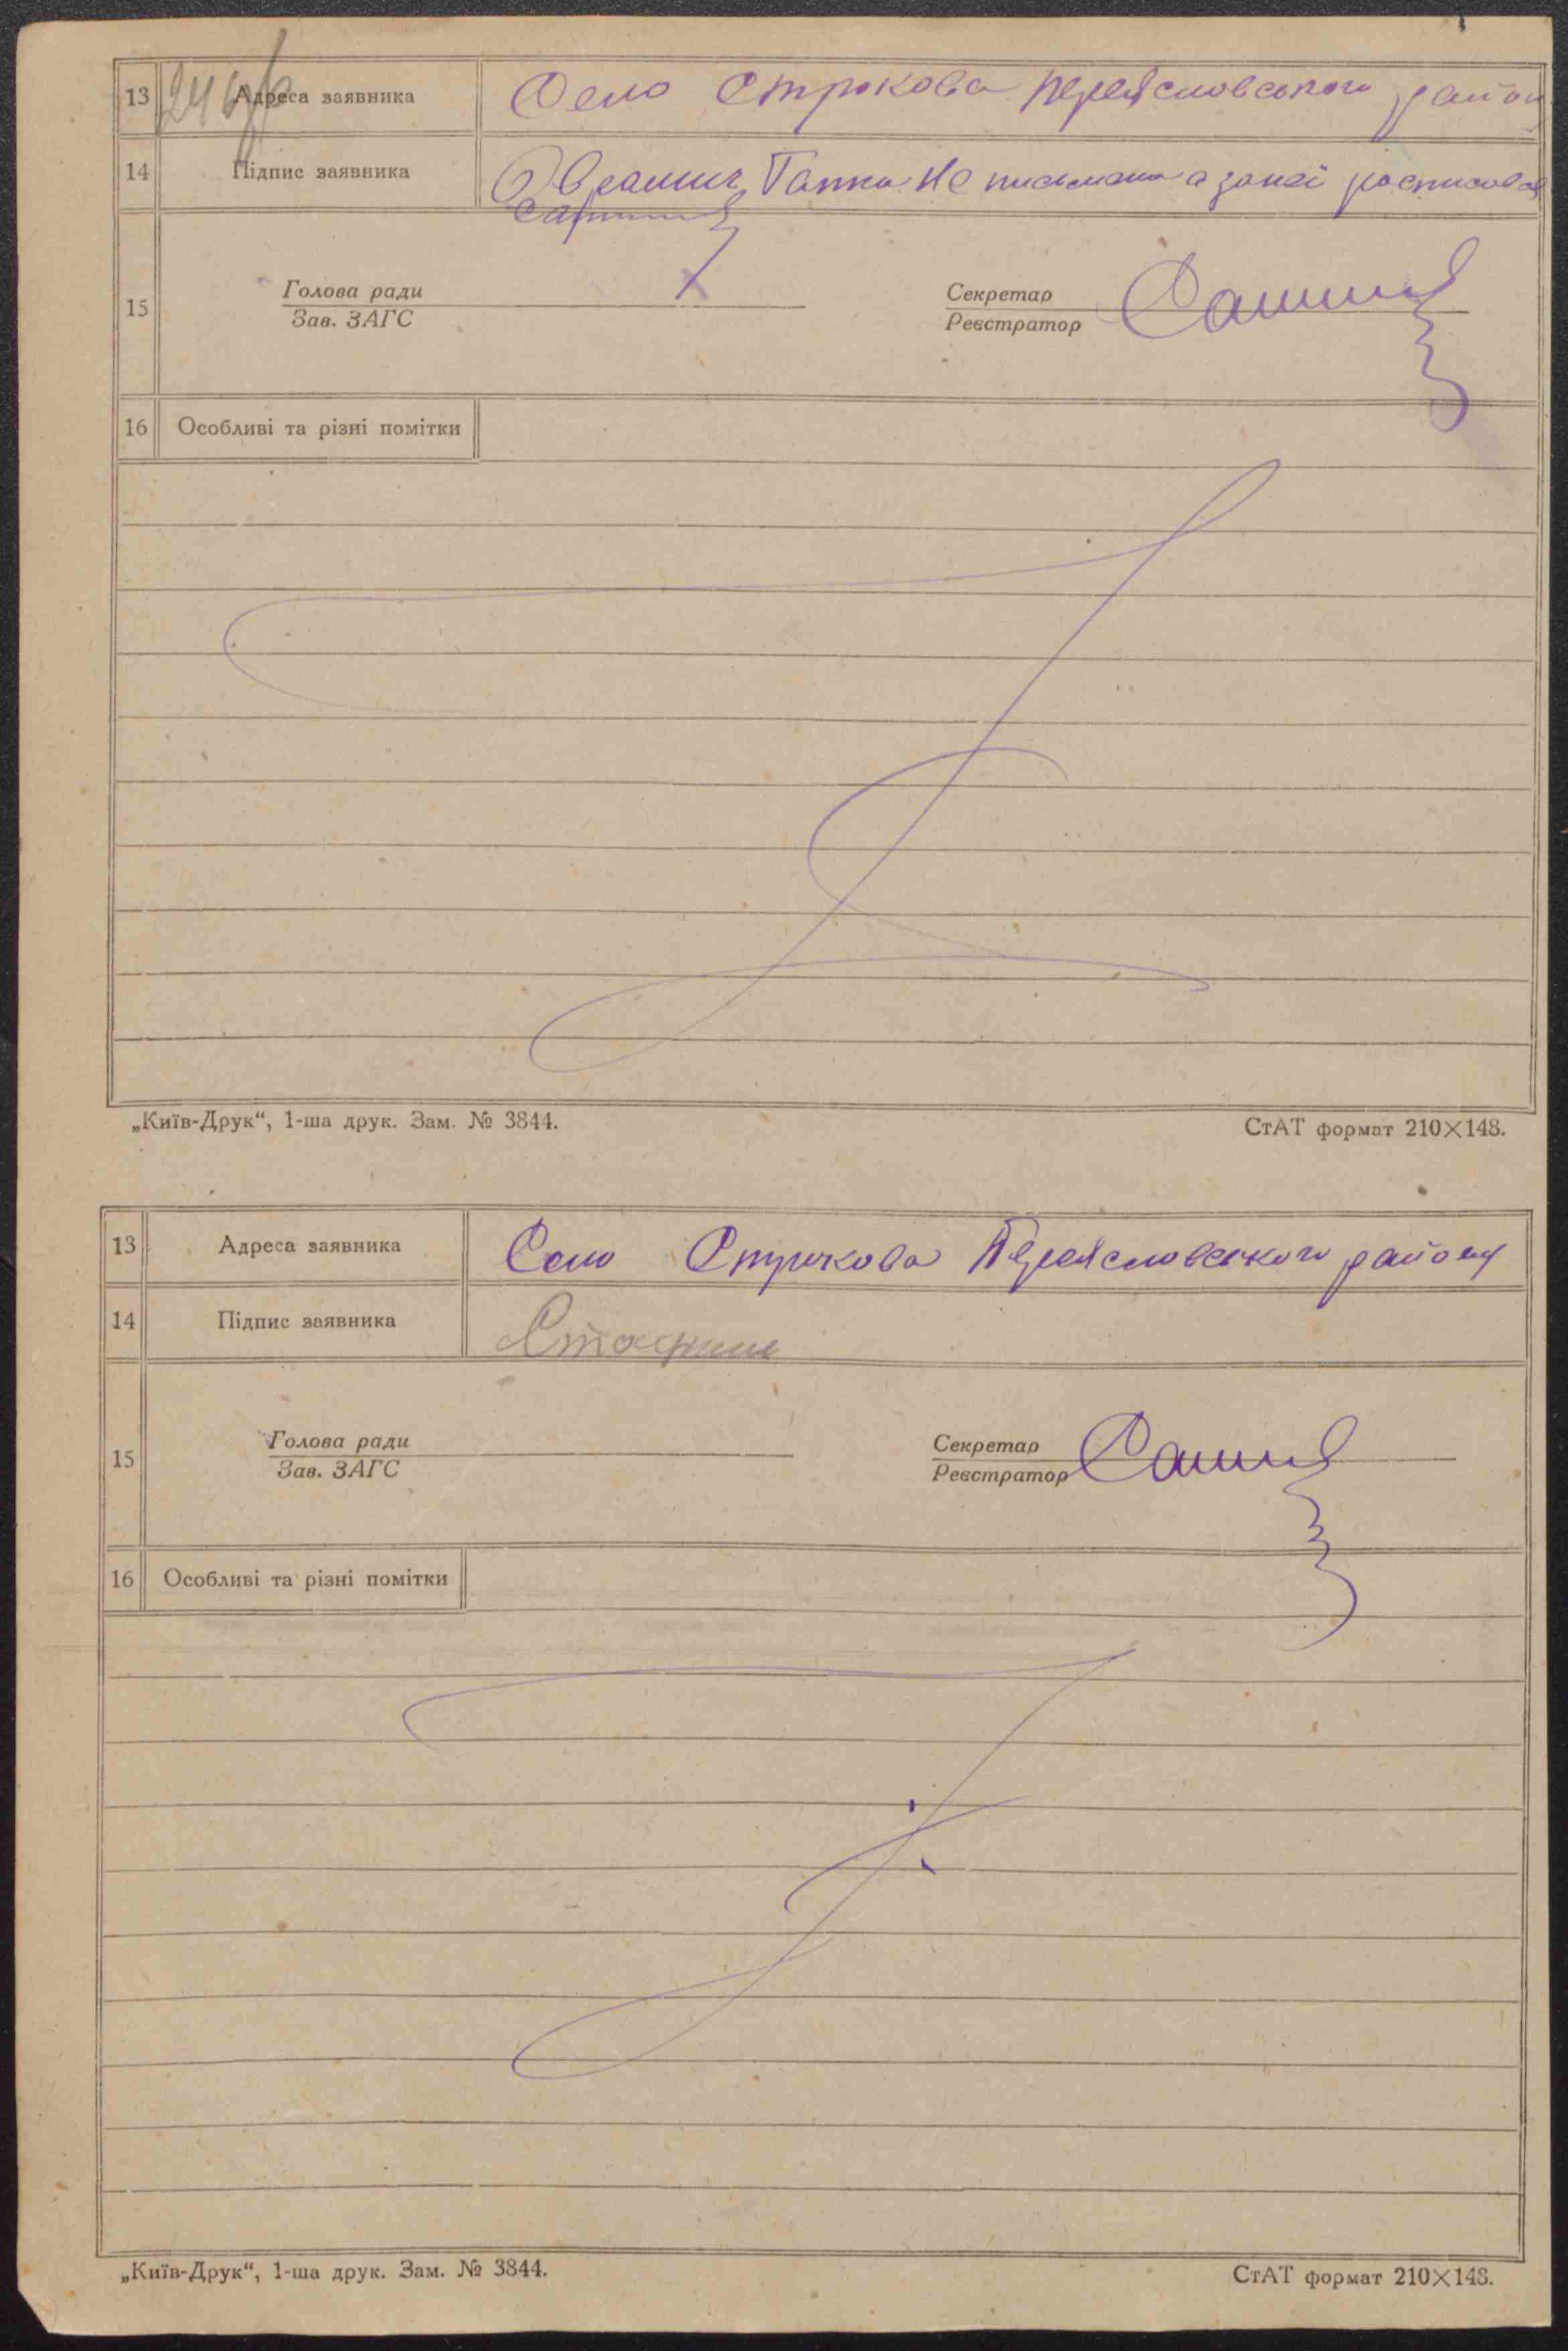 13 Адреса заявника Село Строкова Переясловського район
14 Підпис заявника Гапка не письмена а за неї росписовся
15 Голова ради Секретар
Зав. ЗАГС Реєстратор
16 Особливі та різні помітки
„Київ-Друк“, 1-ша друк. Зам. № 3844. СтАТ формат 210×148.
13 Адреса заявника Село Строкова Переясловського району
14 Підпис заявника
15 Голова ради Секретар
Зав. ЗАГС Реєстратор
16 Особливі та різні помітки
„Київ-Друк“, 1-ша друк. Зам. № 3844. СтАТ формат 210×148.